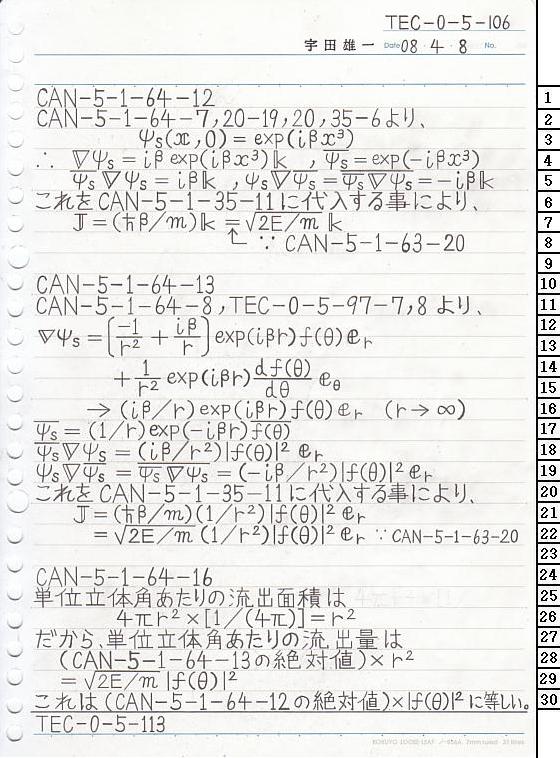 TEC-0-5-106
宇田雄一 Date 08・4・8 No.
CAN-5-1-64-12
CAN-5-1-64-7,20-19,20,35-6より、
ψs(x,0)=exp(iβx³)
∴ ∇ψs=iβ exp(iβx³)𝕜 , ψ̅s̅=exp(-iβx³)
ψ̅s̅∇ψs=iβ𝕜 , ψs∇ψ̅s̅=ψ̅s̅∇ψs=-iβ𝕜
これをCAN-5-1-35-11に代入する事により、
J=(ħβ/m)𝕜=√2E/m 𝕜
∵ CAN-5-1-63-20
CAN-5-1-64-13
CAN-5-1-64-8,TEC-0-5-97-7,8より、
∇ψs=[-1/r²+iβ/r]exp(iβr)f(θ)𝕖r
+1/r² exp(iβr) df(θ)/dθ 𝕖θ
→(iβ/r)exp(iβr)f(θ)𝕖r (r→∞)
ψ̅s̅=(1/r)exp(-iβr)f(θ)
ψ̅s̅∇ψs=(iβ/r²)|f(θ)|² 𝕖r
ψs∇ψ̅s̅=ψ̅s̅∇ψs=(-iβ/r²)|f(θ)|² 𝕖r
これをCAN-5-1-35-11に代入する事により、
J=(ħβ/m)(1/r²)|f(θ)|² 𝕖r
=√2E/m(1/r²)|f(θ)|² 𝕖r ∵CAN-5-1-63-20
CAN-5-1-64-16
単位立体角あたりの流出面積は
4πr²×[1/(4π)]=r²
だから、単位立体角あたりの流出量は
(CAN-5-1-64-13の絶対値)×r²
=√2E/m|f(θ)|²
これは(CAN-5-1-64-12の絶対値)×|f(θ)|²に等しい。
TEC-0-5-113
KOKUYO LOOSE-LEAF ノ-836A 7mm ruled 31 lines
1
2
3
4
5
6
7
8
9
10
11
12
13
14
15
16
17
18
19
20
21
22
23
24
25
26
27
28
29
30